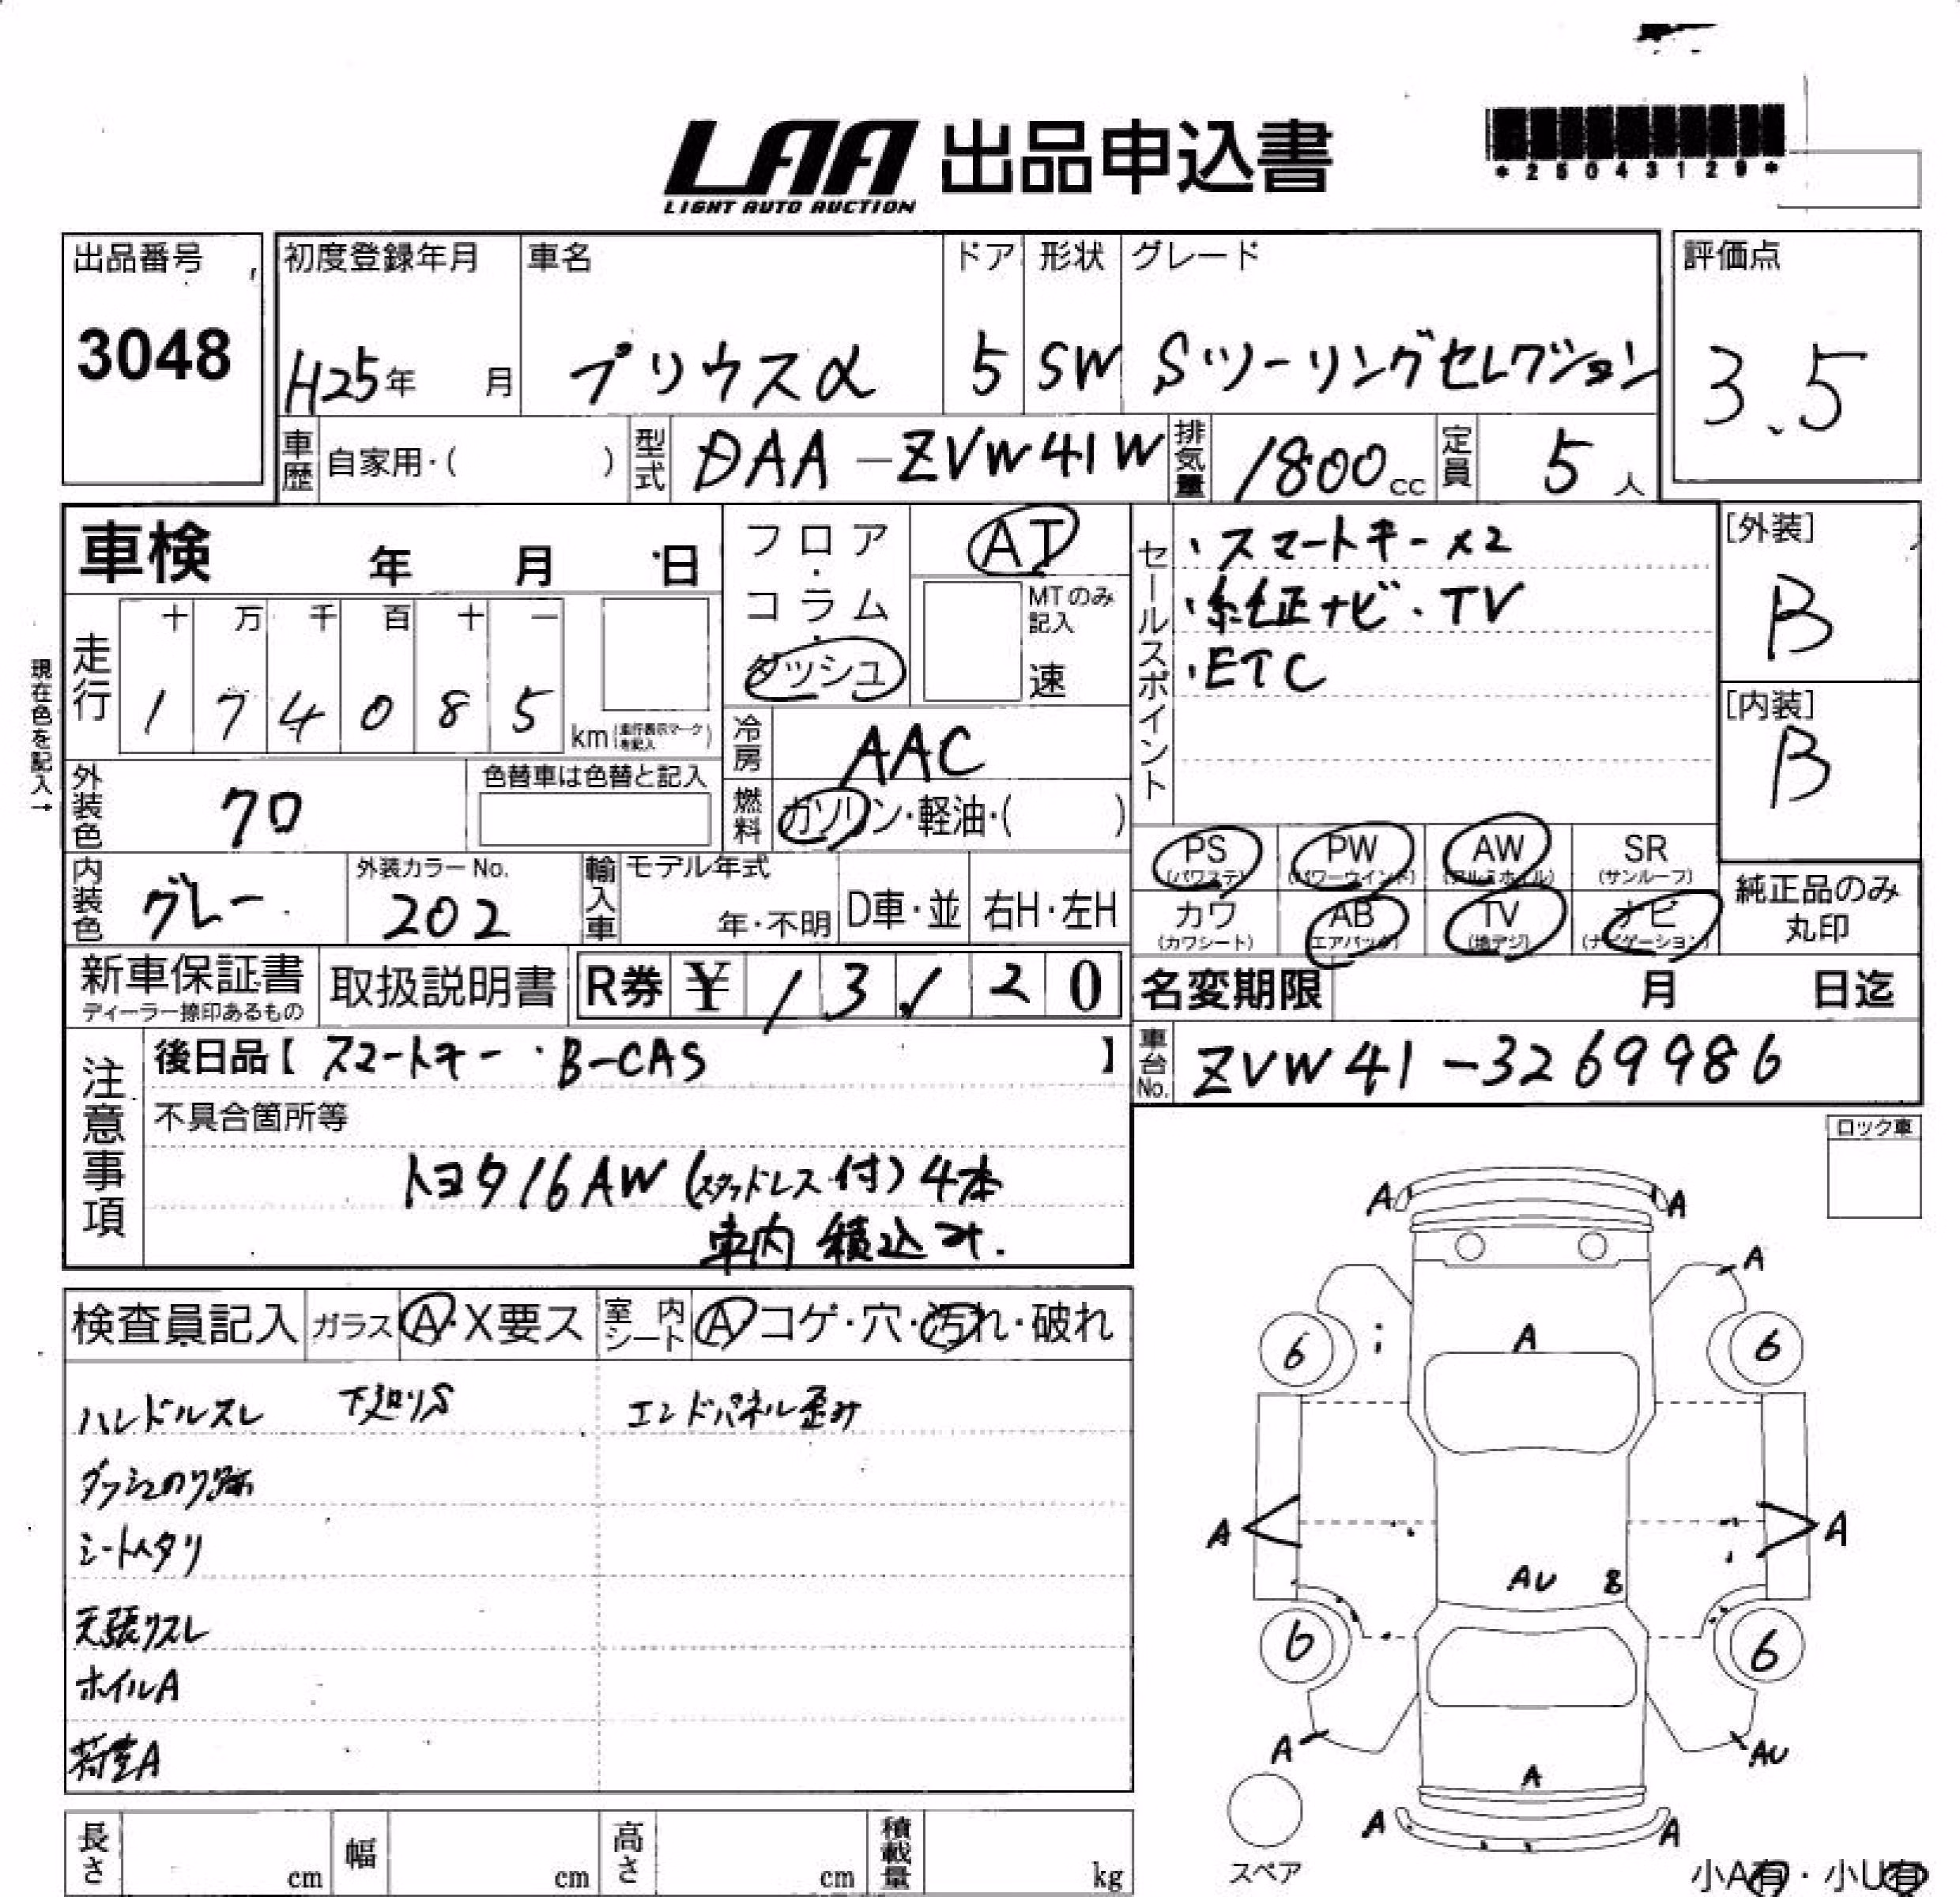 LAA 出品申込書
LIGHT AUTO AUCTION
*25043129*
出品番号
3048
初度登録年月 車名 ドア 形状 グレード
H25年 月 プリウスα 5 SW Sツーリングセレクション
評価点
3.5
車歴 自家用・( ) 型式 DAA-ZVW41W 排気量 1800cc 定員 5人
車検 年 月 日
現在色を記入→
走行 十 万 千 百 十 一
1 7 4 0 8 5 km (走行表示マークを記入)
フロア・コラム・ダッシュ
AT
MTのみ記入
速
冷房 AAC
燃料 ガソリン・軽油・( )
セールスポイント
・スマートキー×2
・純正ナビ・TV
・ETC
[外装]
B
[内装]
B
外装色 クロ 色替車は色替と記入
内装色 グレー 外装カラーNo. 202
輸入車 モデル年式 年・不明 D車・並 右H・左H
PS (パワステ) PW (パワーウインド) AW (アルミホイル) SR (サンルーフ)
カワ (カワシート) AB (エアバッグ) TV (地デジ) ナビ (ナビゲーション)
純正品のみ丸印
新車保証書 ディーラー捺印あるもの 取扱説明書 R券 ¥ 13,20
名変期限 月 日迄
注意事項
後日品【 スマートキー・B-CAS 】
車台No. ZVW41-3269986
不具合箇所等
トヨタ16AW(スタッドレス付)4本
車内積込み.
ロック車
検査員記入 ガラス A・X要ス 室内シート A コゲ・穴・汚れ・破れ
ハンドルスレ 下廻りS エンドパネル歪み
ダッシュのり跡
シートヘタリ
天張リスレ
ホイルA
荷室A
A A
A
6 A 6
A A
AU B
6 6
A AU
A
A A
スペア
小A有・小U有
長さ cm 幅 cm 高さ cm 積載量 kg